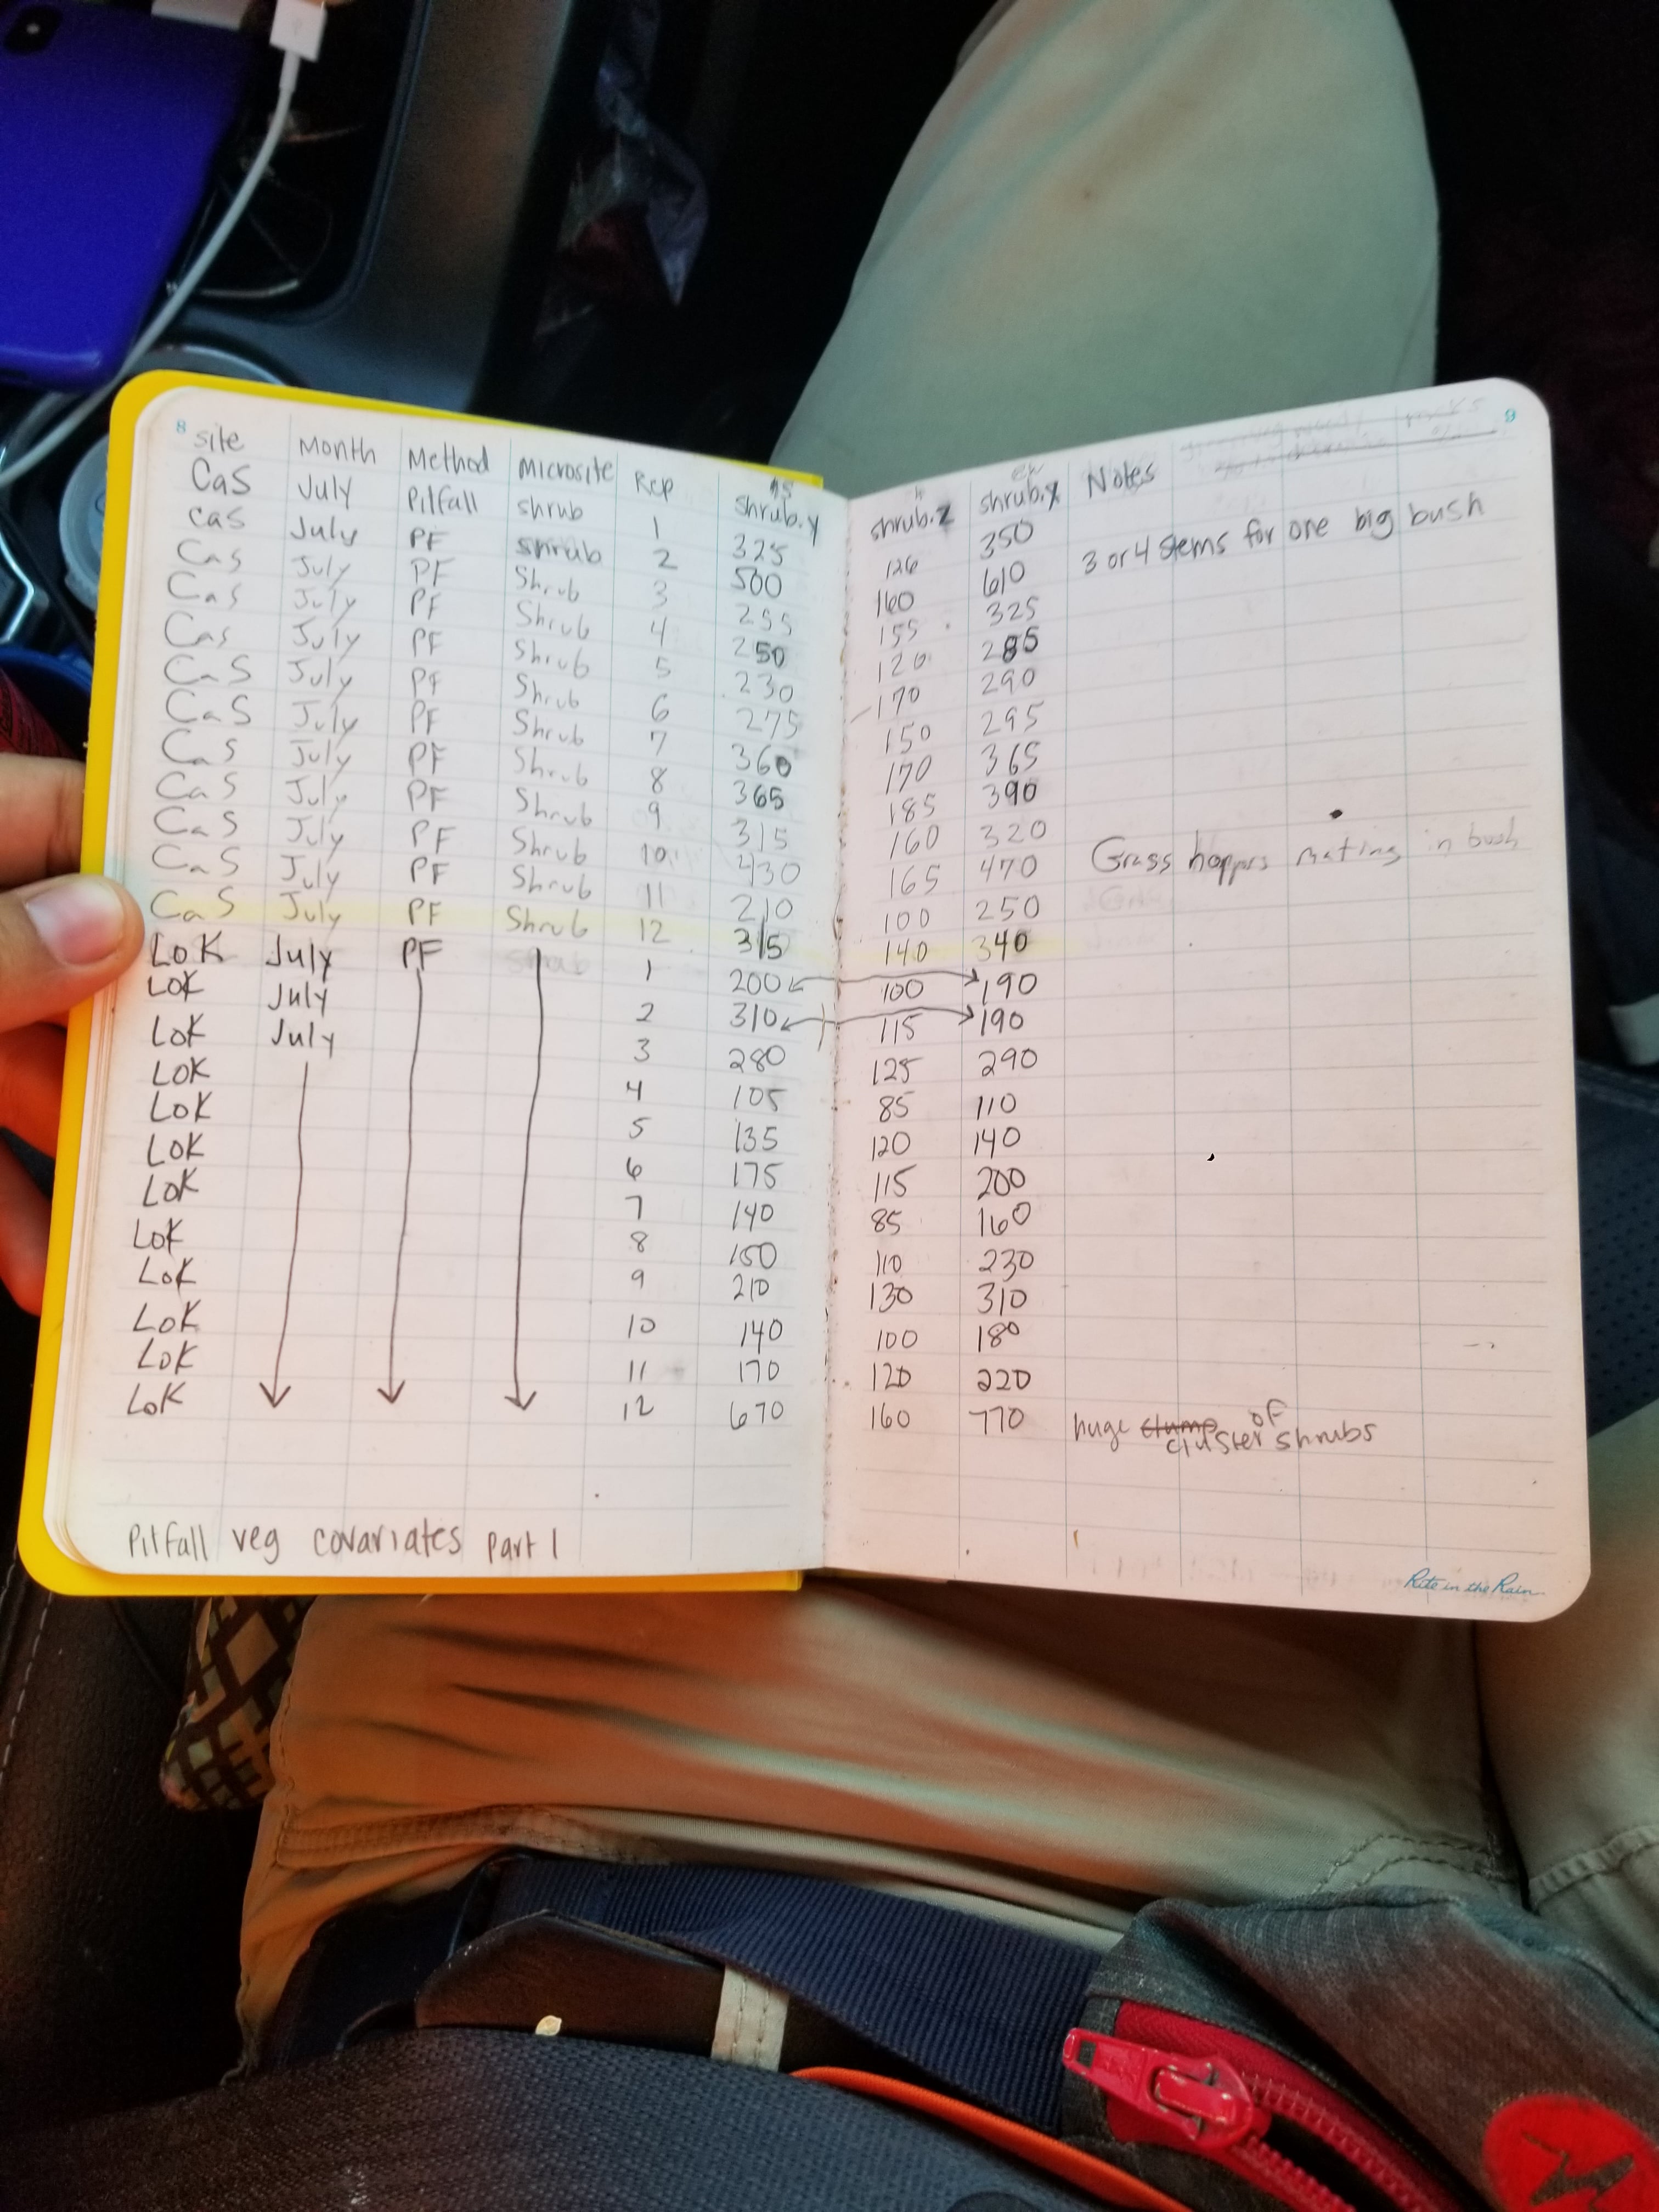 8 9
site Month Method Microsite Rep ns shrub.y h shrub.z ew shrub.x Notes
CaS July Pitfall shrub 1 325 126 350
cas July PF shrub 2 500 160 610 3 or 4 stems for one big bush
CaS July PF Shrub 3 255 155 325
CaS July PF Shrub 4 250 120 285
Cas July PF Shrub 5 230 170 290
CaS July PF Shrub 6 275 150 295
CaS July PF Shrub 7 360 170 365
CaS July PF Shrub 8 365 185 390
CaS July PF Shrub 9 315 160 320
CaS July PF Shrub 10 430 165 470 Grass hoppers mating in bush
CaS July PF Shrub 11 210 100 250
CaS July PF Shrub 12 315 140 340
LoK July PF 1 200 100 190
LoK July 2 310 115 190
LoK July 3 280 125 290
LoK 4 105 85 110
LoK 5 135 120 140
LoK 6 175 115 200
LoK 7 140 85 160
LoK 8 150 110 230
LoK 9 210 130 310
LoK 10 140 100 180
LoK 11 170 120 220
LoK 12 670 160 770 huge clump cluster of shrubs
Pitfall veg covariates part 1
Rite in the Rain